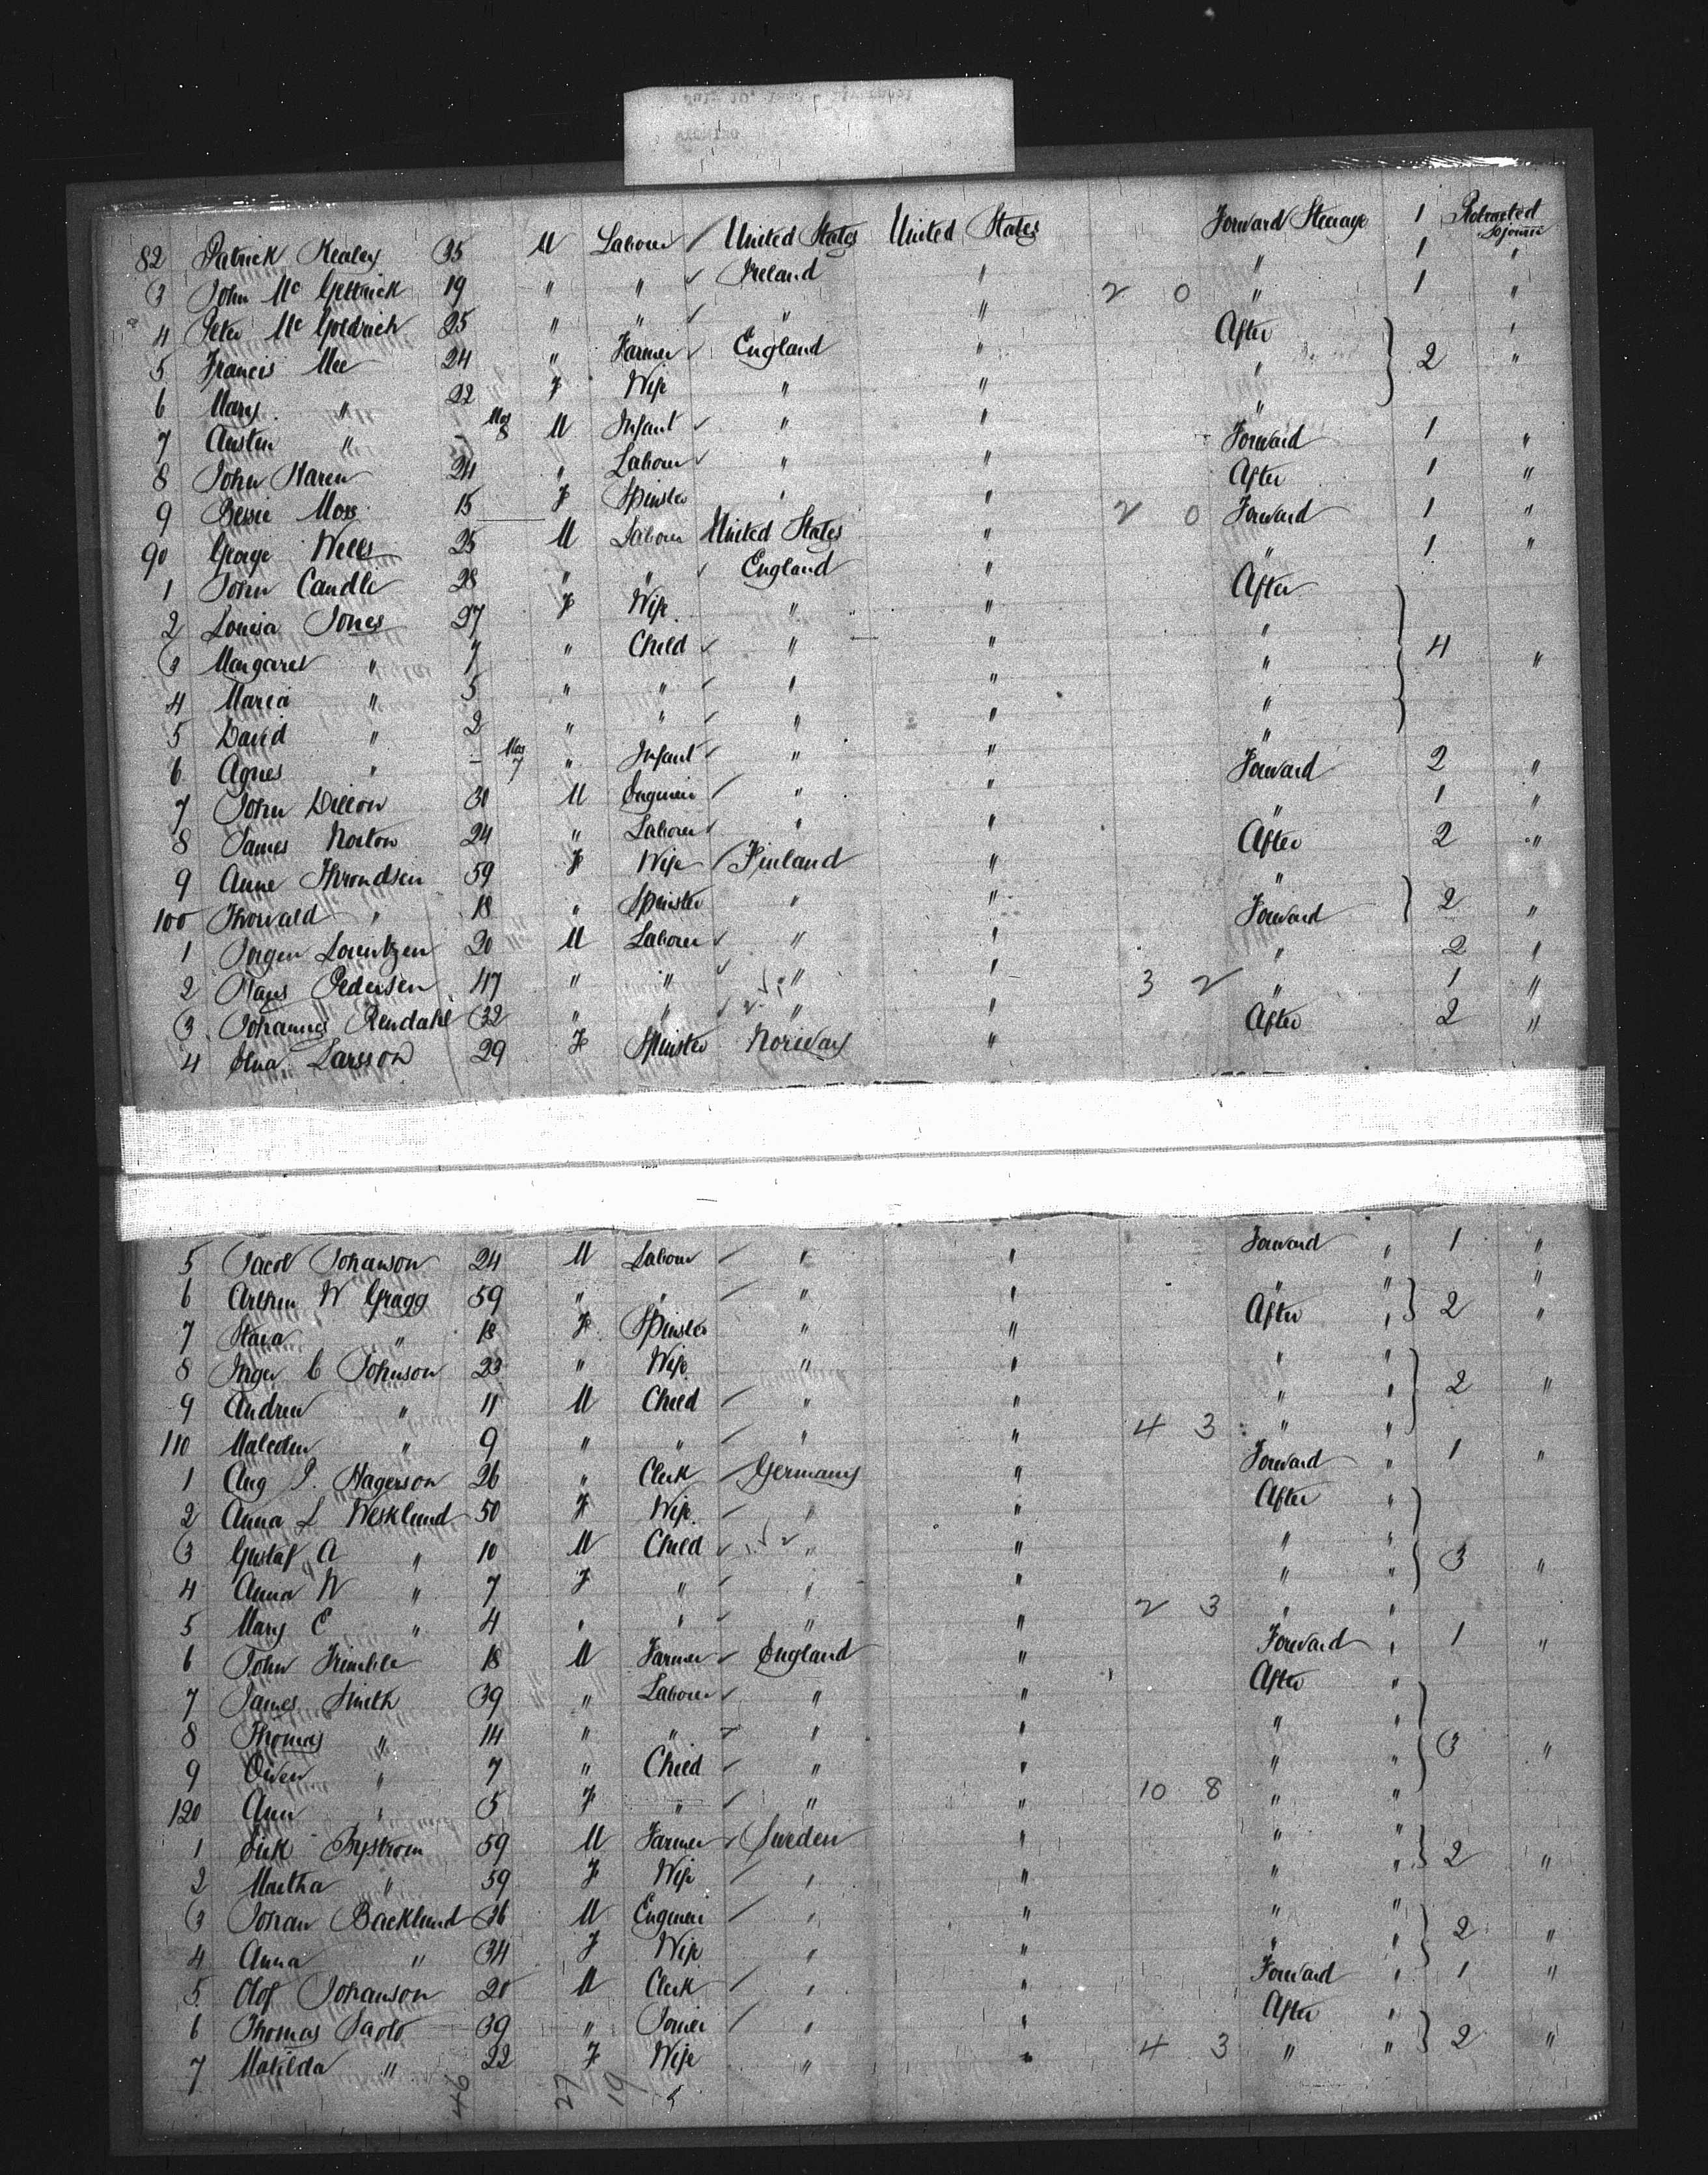 82 Patrick Kealey 35 M Labourer United States United States Forward Steerage 1 Protracted Sojourn
3 John Mc Gettrick 19 " " Ireland " " 1 "
4 Peter Mc Goldrick 25 " " " " 2 0 " 1 "
5 Francis Mee 24 " Farmer England " After
6 Mary " 22 F Wife " " " 2 "
7 Austin " - Mos 8 M Infant " " "
8 John Haren 24 " Labourer " " Forward 1 "
9 Bessie Moss 15 F Spinster " " After 1 "
90 George Wells 25 M Labourer United States " 2 0 Forward 1 "
1 John Candle 28 " " England " " 1 "
2 Louisa Jones 27 F Wife " " After
3 Margaret " 7 " Child " " "
4 Maria " 5 " " " " " 4 "
5 David " 2 " " " " "
6 Agnes " - Mos 7 " Infant " " "
7 John Dillon 30 M Engineer " " Forward 2 "
8 James Norton 24 " Labourer " " " 1 "
9 Anne Throndsen 59 F Wife Finland " After 2 "
100 Thorvald " 18 " Spinster " " "
1 Jorgen Lorentzen 20 M Labourer " " Forward 2 "
2 Hans Pedersen 47 " " " " " 2 "
3 Johannes Rendahl 32 " " " " 3 2 " 1 "
4 Elna Larsson 29 F Spinster Norway " After 2 "
5 Jacob Johanson 24 M Labourer " " Forward " 1 "
6 Arthur W Gragg 59 " " " " " " "
7 Hana " 18 F Spinster " " After " 2 "
8 Inger C Johnson 23 " Wife " " " "
9 Andrew " 11 M Child " " " " 2 "
110 Malcolm " 9 " " " " 4 3 " "
1 Aug P. Hagerson 26 " Clerk Germany " Forward " 1 "
2 Anna L Wesklund 50 F Wife " " After "
3 Gustaf A " 10 M Child " " " "
4 Anna W " 7 F " " " " " 3 "
5 Mary E " 4 " " " " 2 3 " "
6 John Trimble 18 M Farmer England " Forward " 1 "
7 James Smith 39 " Labourer " " After "
8 Thomas " 14 " " " " " "
9 Owen " 7 " Child " " " " 3 "
120 Ann " 5 F " " " 10 8 " "
1 Erik Bystrom 59 M Farmer Sweden " " "
2 Martha " 59 F Wife " " " " 2 "
3 Johan Backlund 36 M Engineer " " " "
4 Anna " 34 F Wife " " " " 2 "
5 Olof Johanson 20 M Clerk " " Forward " 1 "
6 Thomas Saolo 39 " Joiner " " After "
7 Matilda " 22 F Wife " " 4 3 " " 2 "
46 27 19